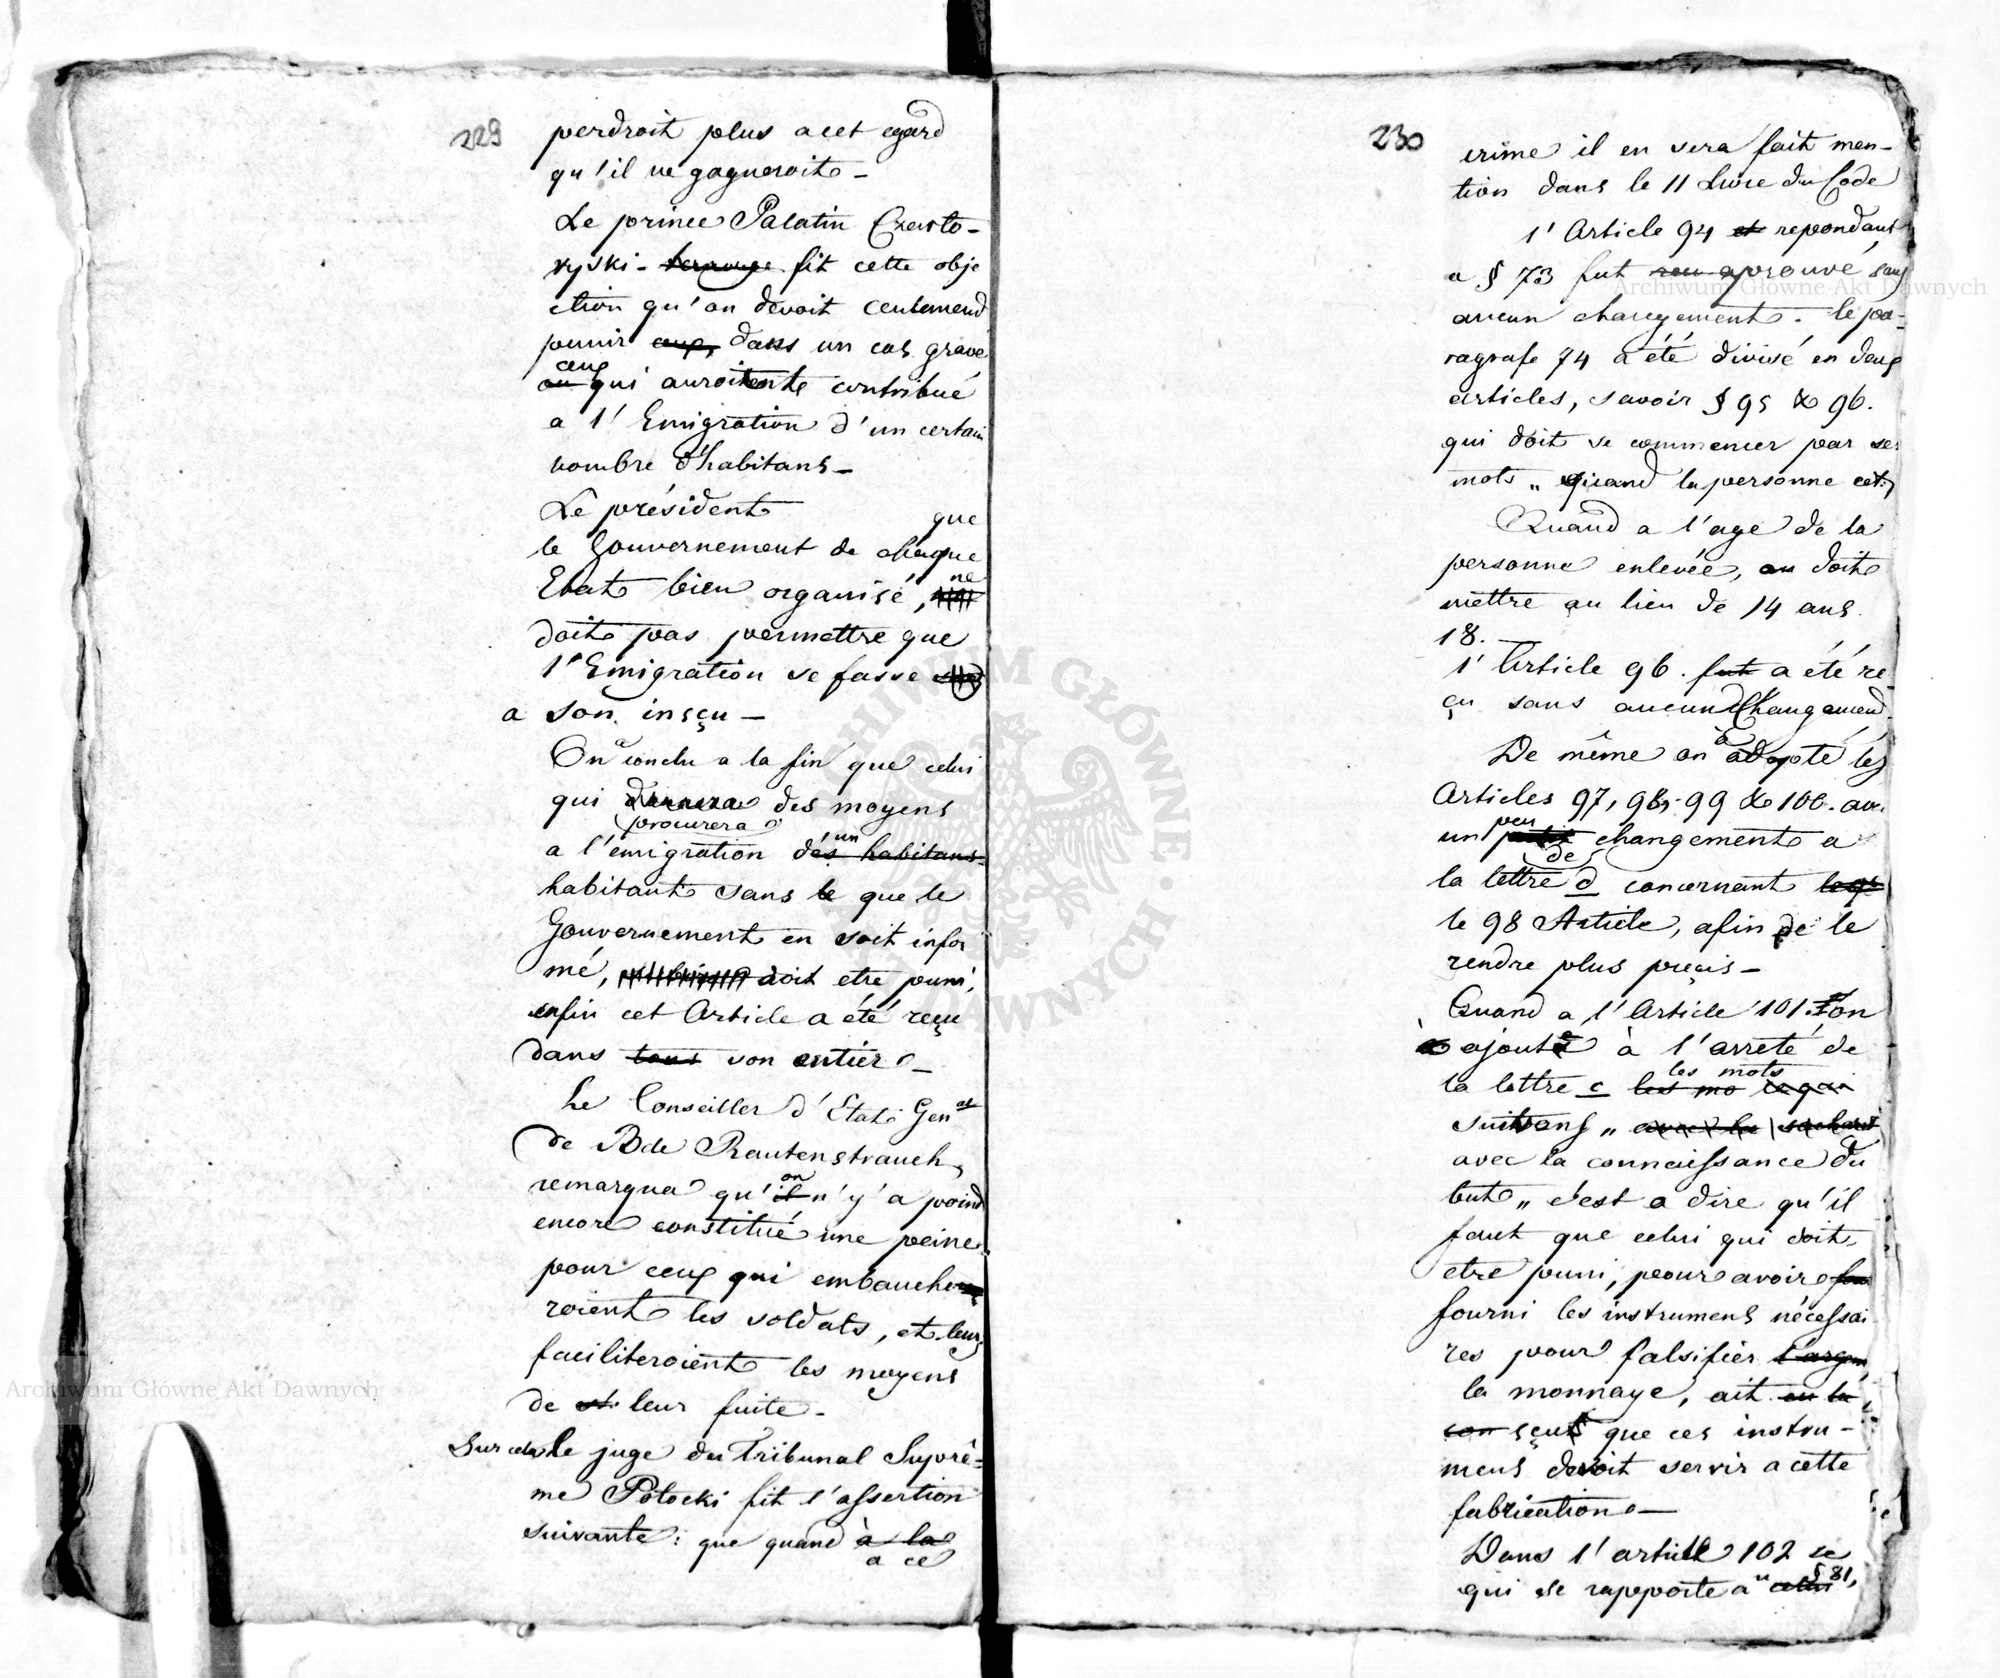 229
perdroit plus a cet egard
qu'il ne gagneroit –
Le prince Palatin Czarto-
ryski – fit cette obje
ction qu'on devoit ceulemend
punir ceux, dans un cas grave
ceux
ou qui auroitente contribué
a l'Emigration d'un certain
nombre d'habitans –
Le président que
le Gouvernement de chaque
Etat bien organisé, ne
doit pas permettre que
l'Emigration se fasse
a son insçu –
On a conclu a la fin que celui
qui donnera des moyens
procurera
a l'emigration des habitans
d'un
habitant sans le que le
Gouvernement en soit infor
mé, doit etre puni,
enfin cet Article a été reçu
dans tout son entier –
Le Conseiller d'Etat Gen al
de Bde Rautenstrauch,
remarqua qu'il n'y a poind
on
encore constitué une peine
pour ceux qui embauche
roient les soldats, et leur
faciliteroient les moyens
de et leur fuite –
Sur cela le juge du Tribunal Suprê-
me Potocki fit l'assertion
suivante: que quand à la
a ce
230
crime il en sera fait men-
tion dans le II Livre du Code
l'Article 94 et repondant
a § 73 fut reçu aprouvé sans
aucun changement. le pa-
ragrafe 74 a été divisé en deux
articles, savoir § 95 & 96.
qui doit se commencer par ses
mots „ quand la personne est „
Quand a l'age de la
personne enlevée, on doit
mettre au lieu de 14 ans
18.
l'Article 96. fut a été re
çu sans aucun Changemend.
De même on a adopté les
Articles 97, 98, 99 & 100. avec
un petit changement a
peu de
la lettre d concernant
le 98 Article, afin de le
rendre plus preçis –
Quand a l'Article 101. l'on
a ajouté à l'arreté de
la lettre c les mo ce qui
les mots
suivans „ avec la sachant
avec la connaissance du
but „ c'est a dire qu'il
faut que celui qui doit
etre puni, pour avoir fou
fourni les instrumens nécessai
res pour falsifier l'argen
la monnaye, ait eu la
con sçut que ces instru-
mens devoit servir a cette
fabrication –
Dans l'article 102 ce
qui se rapporte au celui § 81,
Archiwum Główne Akt Dawnych
Archiwum Główne Akt Dawnych
ARCHIWUM GŁÓWNE AKT DAWNYCH